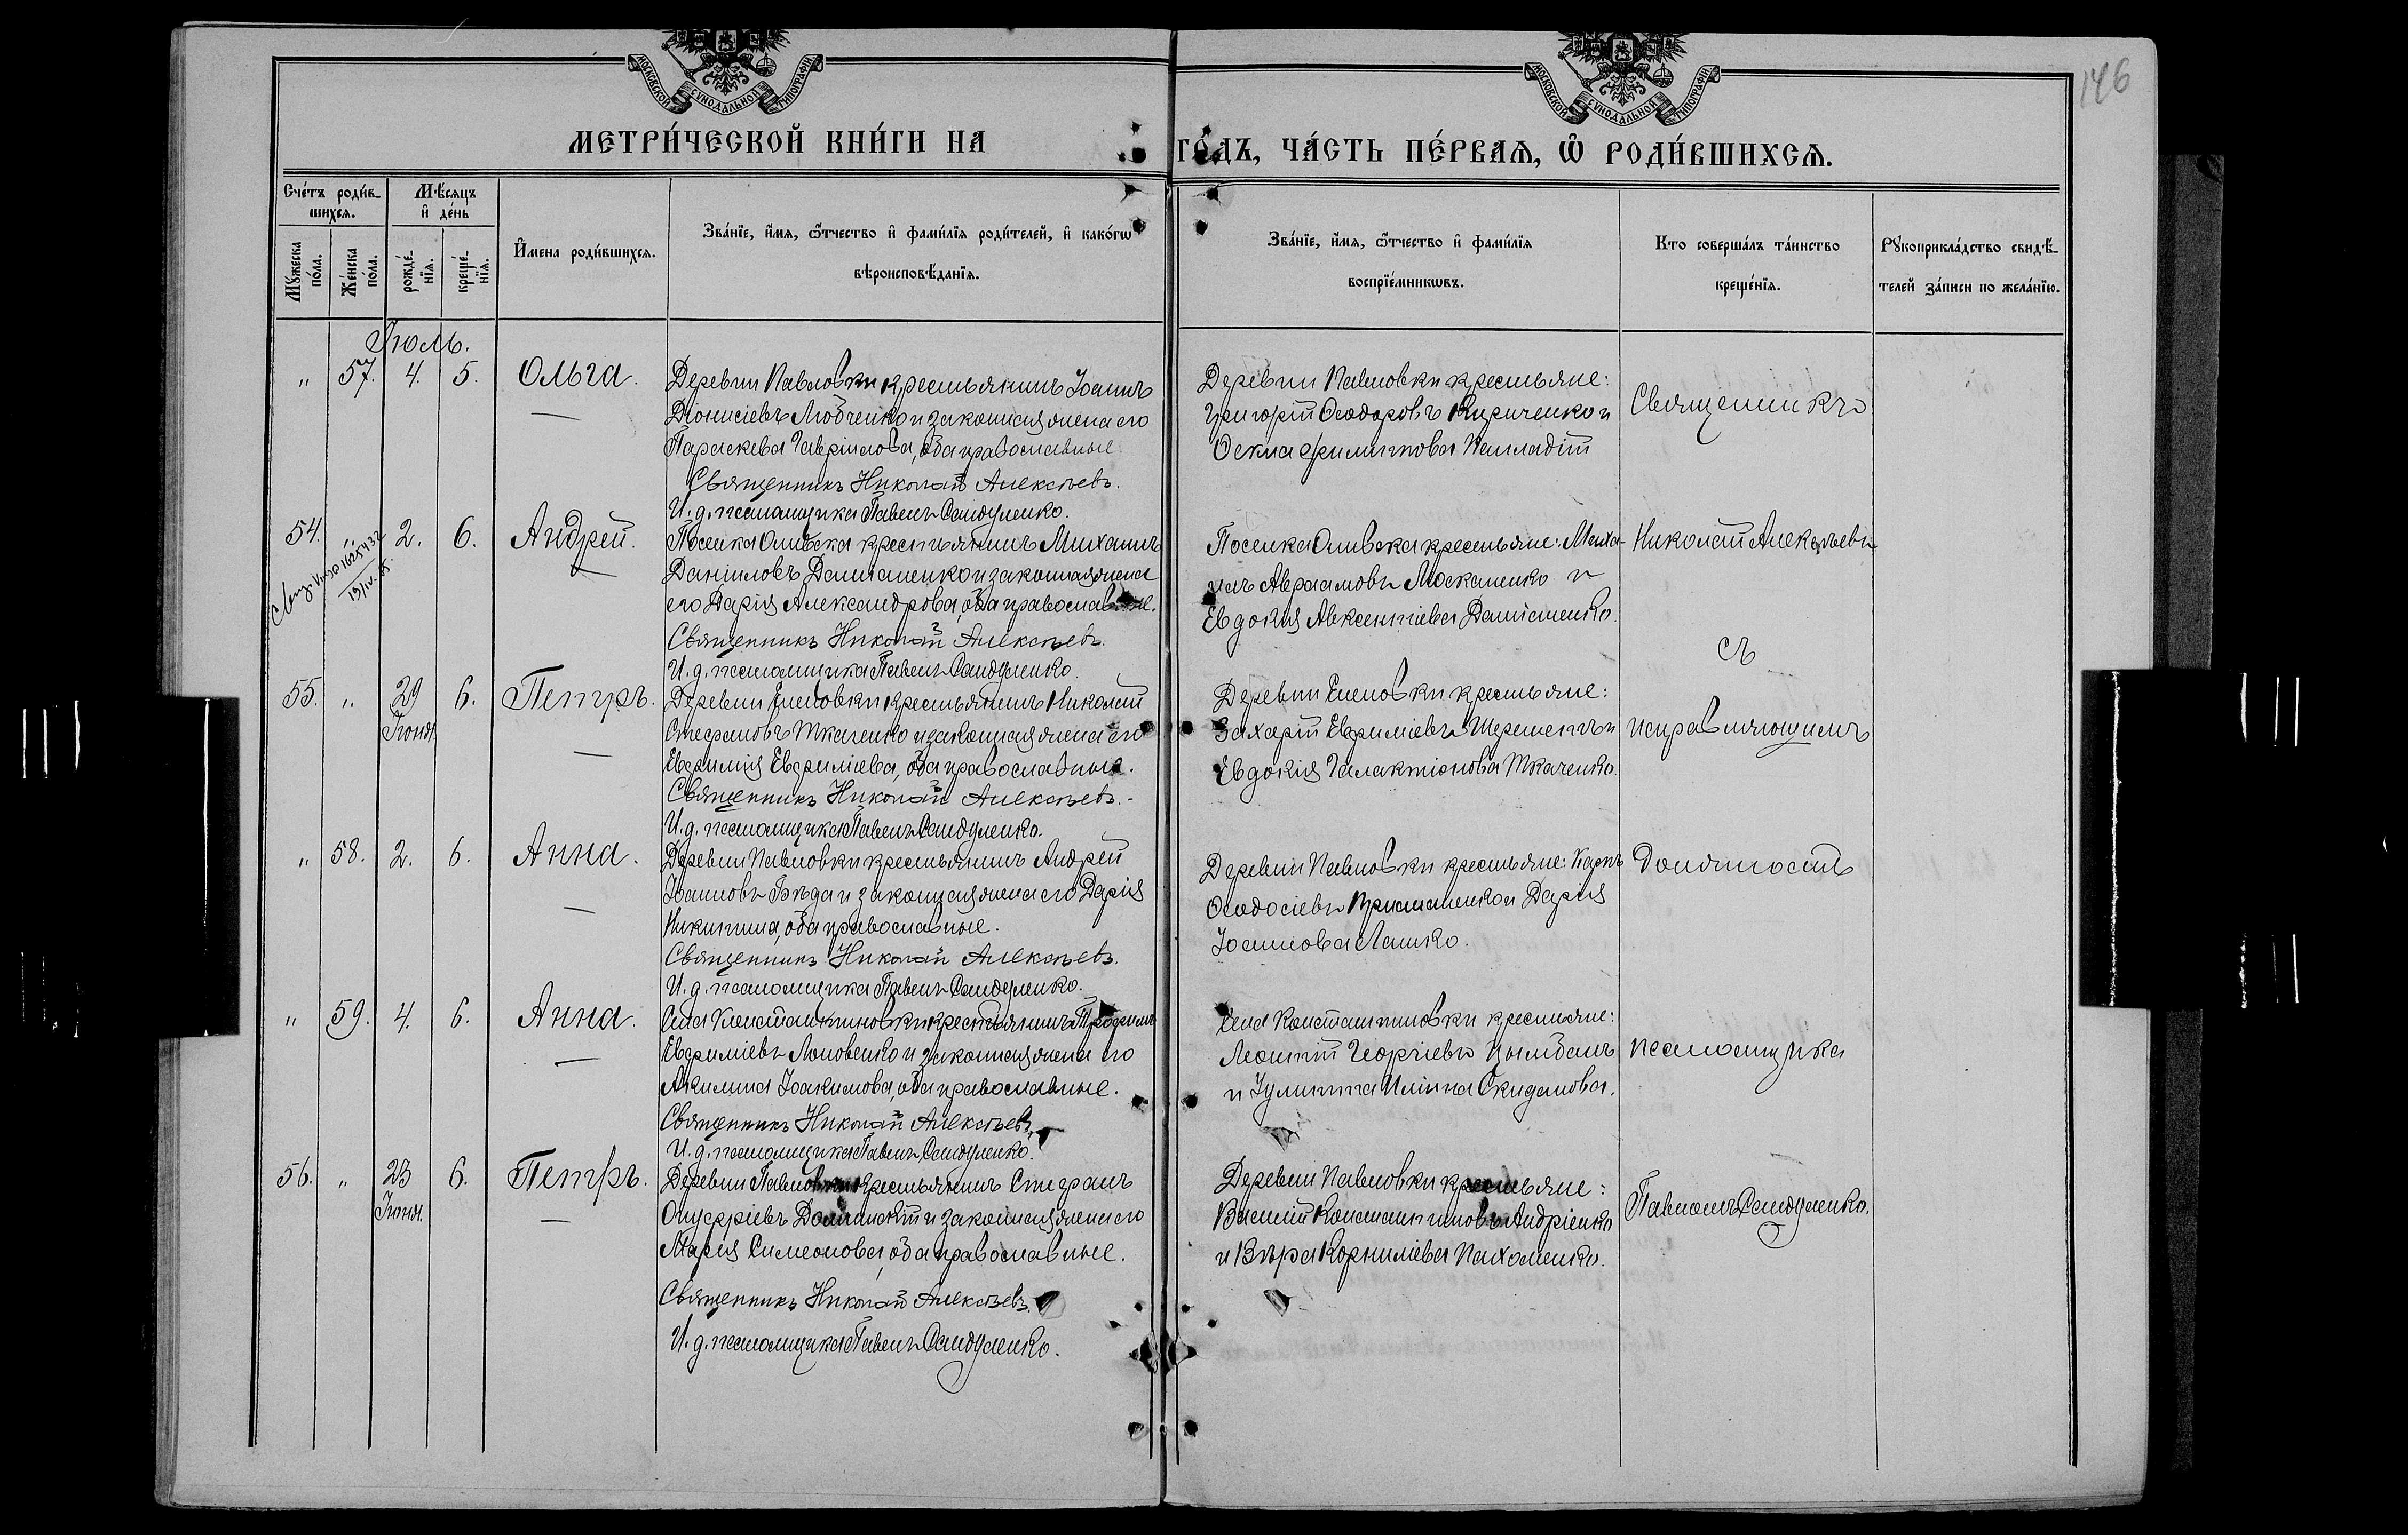 МОСКОВСКОЙ СѴНОДАЛЬНОЙ ТИПОГРАФІИ.
МОСКОВСКОЙ СѴНОДАЛЬНОЙ ТИПОГРАФІИ.
146
МЕТРИ́ЧЕСКОЙ КНИ́ГИ НА ГО́ДЪ, ЧА́СТЬ ПЕ́РВАѦ, Ѡ҆ РОДИ́ВШИХСѦ.
Сче́тъ роди́в-
шихсѧ.
Мꙋжеска
по́ла.
Же́нска
по́ла.
Мѣ́сѧцъ
и҆ де́нь
рожде́-
нїѧ.
креще́-
нїѧ.
И҆мена роди́вшихсѧ.
Зва́нїе, и҆́мѧ, ѻ҆́тчество и҆ фами́лїѧ роди́телей, и҆ како́гѡ
вѣроисповѣ́данїѧ.
Зва́нїе, и҆́мѧ, ѻ҆́тчество и҆ фами́лїѧ
воспрїе́мникѡвъ.
Кто соверша́лъ та́инство
креще́нїѧ.
Рꙋкоприкла́дство свидѣ́-
телей за́писи по жела́нїю.
Іюль.
" 57. 4. 5. Ольга.
Деревни Павловки крестьянинъ Іоаннъ
Діонисіевъ Любченко и законная жена его
Параскева Гавріилова, оба православные
Священникъ Николай Алексѣевъ.
И. д. псаломщика Павелъ Сандуленко.
Деревни Павловки крестьяне:
Григорій Ѳеодоровъ Кириченко и
Ѳекла Филиппова
Священникъ
54. " 2. 6. Андрей.
Поселка крестьянинъ Михаилъ
Даніиловъ Даниленко и законная жена
его Дарія Александрова, оба православные.
Священникъ Николай Алексѣевъ.
И. д. псаломщика Павелъ Сандуленко.
Поселка крестьяне: Миха-
илъ Авраамовъ Москаленко и
Евдокія Авксентіева Даниленко.
Николай Алексѣевъ
съ
55. " 29 6. Петръ.
Іюня
Деревни Еленовки крестьянинъ Николай
Стефановъ Ткаченко и законная жена его
Евфимія Евфиміева, оба православные.
Священникъ Николай Алексѣевъ.
И. д. псаломщика Павелъ Сандуленко.
Деревни Еленовки крестьяне:
Захарій Евфиміевъ и
Евдокія Галактіонова Ткаченко.
исправляющимъ
" 58. 2. 6. Анна.
Деревни Павловки крестьянинъ Андрей
Іоанновъ Бѣда и законная жена его Дарія
Никитина, оба православные.
Священникъ Николай Алексѣевъ.
И. д. псаломщика Павелъ Сандуленко.
Деревни Павловки крестьяне: Карпъ
Ѳеодосіевъ и Дарія
Іоаннова Лашко.
должность
" 59. 4. 6. Анна.
Села Константиновки крестьянинъ Трофимъ
Евфиміевъ и законная жена его
Акилина Іоакимова, оба православные.
Священникъ Николай Алексѣевъ.
И. д. псаломщика Павелъ Сандуленко.
Села Константиновки крестьяне:
Леонтій Георгіевъ Цымбалъ
и Іулитта Иліина Скиданова.
псаломщика
56. " 23 6. Петръ.
Іюня.
Деревни Павловки крестьянинъ Стефанъ
Онуфріевъ и законная жена его
Марія Симеонова, оба православные.
Священникъ Николай Алексѣевъ.
И. д. псаломщика Павелъ Сандуленко.
Деревни Павловки крестьяне:
Василій Константиновъ Андріенко
и Вѣра Корниліева Пахоменко.
Павломъ Сандуленко.